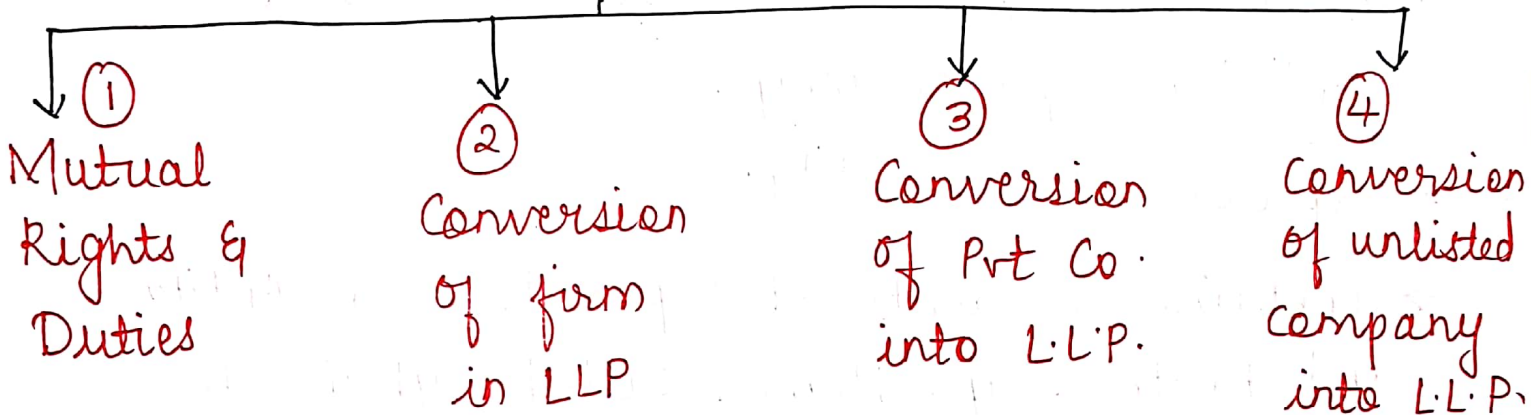 ①
Mutual
Rights &
Duties
②
Conversion
of firm
in LLP
③
Conversion
of Pvt Co.
into L.L.P.
④
Conversion
of unlisted
company
into L.L.P.